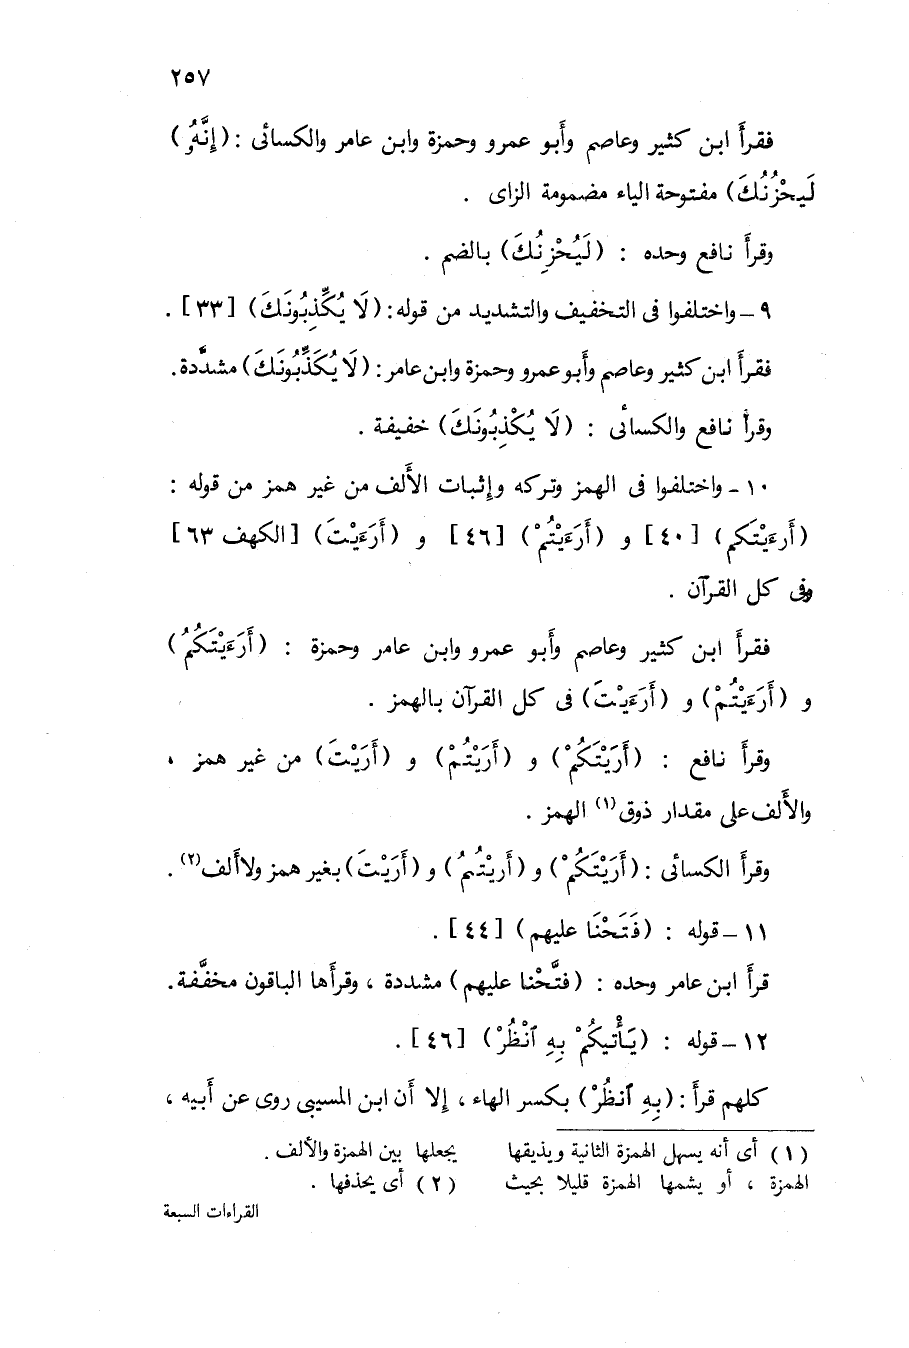 ٢٥٧
فقرأ ابن كثير وعاصم وأبو عمرو وحمزة وابن عامر والكسائى : ( إِنَّهُۥ
لَيَحْزُنُكَ ) مفتوحة الياء مضمومة الزاى .
وقرأ نافع وحده : ( لَيُحْزِنُكَ ) بالضم .
٩ – واختلفوا فى التخفيف والتشديد من قوله : ( لَا يُكَذِّبُونَكَ ) [ ٣٣ ] .
فقرأ ابن كثير وعاصم وأبو عمرو وحمزة وابن عامر : ( لَا يُكَذِّبُونَكَ ) مشدَّدة .
وقرأ نافع والكسائى : ( لَا يُكْذِبُونَكَ ) خفيفة .
١٠ – واختلفوا فى الهمز وتركه وإثبات الألف من غير همز من قوله :
( أَرءَيْتَكم ) [ ٤٠ ] و ( أَرَءَيْتُمْ ) [ ٤٦ ] و ( أَرَءَيْتَ ) [ الكهف ٦٣ ]
وفى كل القرآن .
فقرأ ابن كثير وعاصم وأبو عمرو وابن عامر وحمزة : ( أَرَءَيْتَكُمُ )
و ( أَرَءَيْتُمْ ) و ( أَرَءَيْتَ ) فى كل القرآن بالهمز .
وقرأ نافع : ( أَرَيْتَكُمْ ) و ( أَرَيْتُمْ ) و ( أَرَيْتَ ) من غير همز ،
والألف على مقدار ذوق (١) الهمز .
وقرأ الكسائى : ( أَرَيْتَكُمْ ) و ( أَريْتُمُ ) و ( أَرَيْتَ ) بغير همز ولا ألف (٢) .
١١ – قوله : ( فَتَحْنَا عليهم ) [ ٤٤ ] .
قرأ ابن عامر وحده : ( فتَّحْنا عليهم ) مشددة ، وقرأها الباقون مخفَّفة .
١٢ – قوله : ( يَأْتِيكُمْ بِهِ ٱنْظُرْ ) [ ٤٦ ] .
كلهم قرأ : ( بِهِ ٱنظُرْ ) بكسر الهاء ، إلا أن ابن المسيبى روى عن أبيه ،
( ١ ) أى أنه يسهل الهمزة الثانية ويذيقها
الهمزة ، أو يشمها الهمزة قليلا بحيث
يجعلها بين الهمزة والألف .
( ٢ ) أى يحذفها .
القراءات السبعة